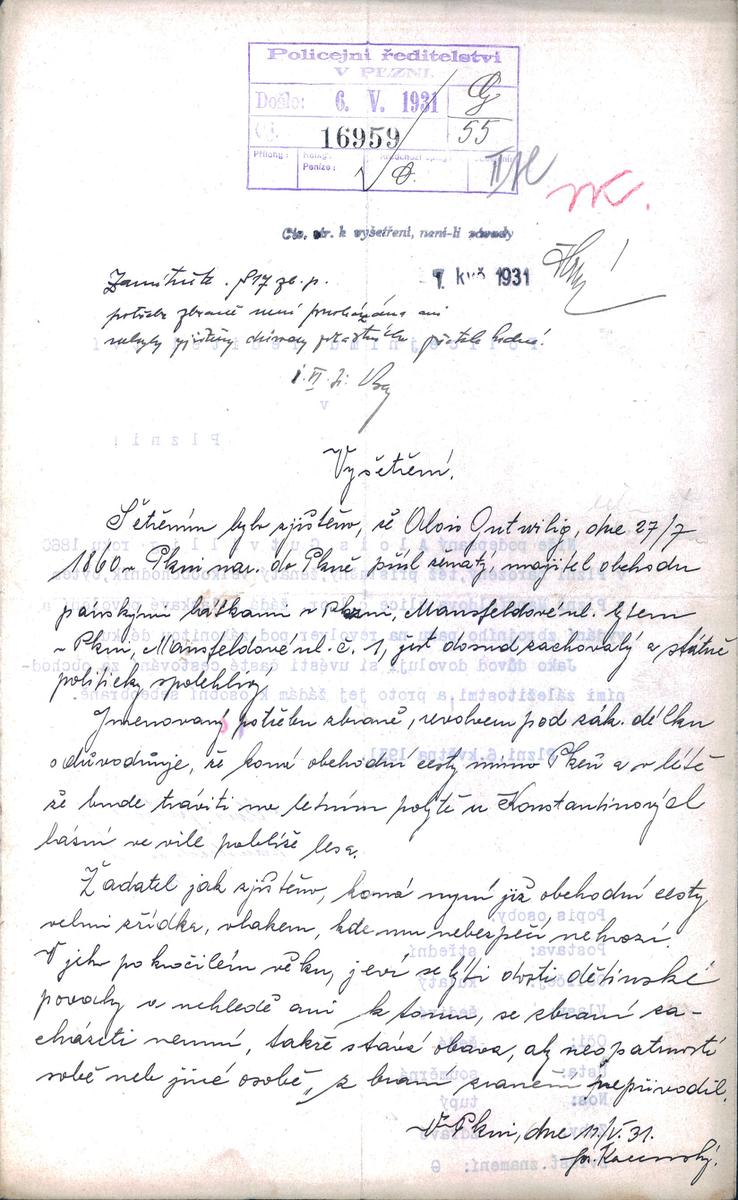 Policejní ředitelství
V PLZNI.
Došlo: 6. V. 1931
Čj. 16959
55
Přílohy:
Peníze:
Čís. str. k vyšetření, není-li závady
7. kvě 1931
Zamítnute. §17 zb. p.
potřeba zbraně není prokázána ani
nebyly zjištěny důvody zvláštního zřetele hodné.
Vyšetření.
Šetřením bylo zjištěno, že Alois Gutwillig, dne 27/7
1860 v Plzni nar. do Plzně přísl. ženatý, majitel obchodu
pánskými látkami v Plzni, Mansfeldově ul. bytem
v Plzni, Mansfeldově ul. č. 1, jest dosud zachovalý a státně
politicky spolehlivý.
Jmenovaný potřebu zbraně, revolveru pod zák. délku
odůvodňuje, že koná obchodní cesty mimo Plzeň a v létě
že bude tráviti na letním pobytě u Konstantinových
lázní ve vile poblíže lesa.
Žadatel jak zjištěno, koná nyní již obchodní cesty
velmi zřídka, vlakem, kde mu nebezpečí nehrozí.
V jeho pokročilém věku, jeví se býti dosti dětinské
povahy a nehledě ani k tomu, se zbraní za-
cházeti neumí, takže stává obava, aby neopatrností
sobě neb jiné osobě, zbraní zranění nepřivodil.
V Plzni, dne 11/V. 31.